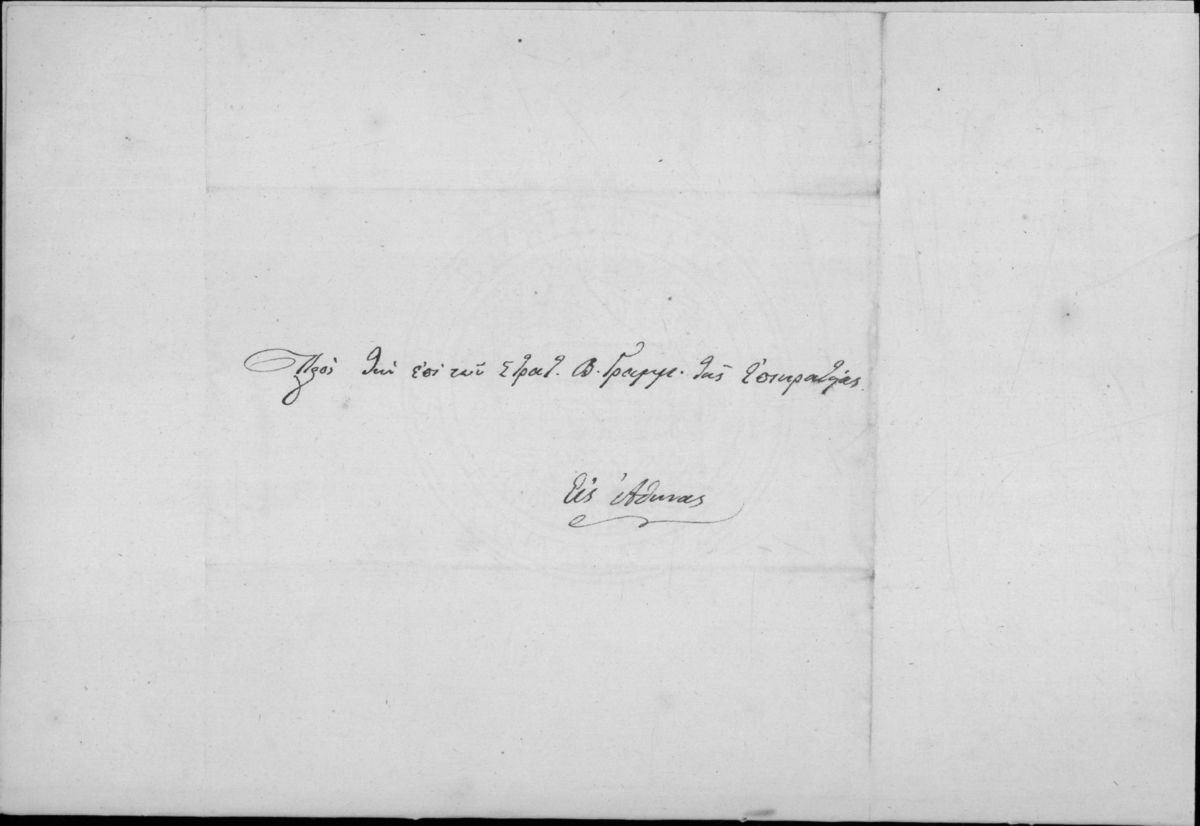 Πρὸς τὴν ἐπὶ τῶν Στρατ. Β. Γραμμ. τῆς Ἐπικρατείας.
Εἰς Ἀθήνας